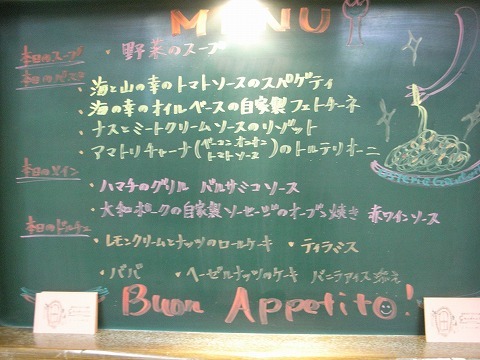 MENU
本日のスープ ・野菜のスープ
本日のパスタ
・海と山の幸のトマトソースのスパゲティ
・海の幸のオイルベースの自家製フェトチーネ
・ナスとミートクリームソースのリゾット
・アマトリチャーナ(ベーコン オニオン トマトソース)のトルテリオーニ
本日のメイン
・ハマチのグリル バルサミコソース
・大和ポークの自家製ソーセージのオーブン焼き 赤ワインソース
本日のドルチェ
・レモンクリームとナッツのロールケーキ ・ティラミス
・ババ ・ヘーゼルナッツのケーキ バニラアイス添え
Buon Appetito!